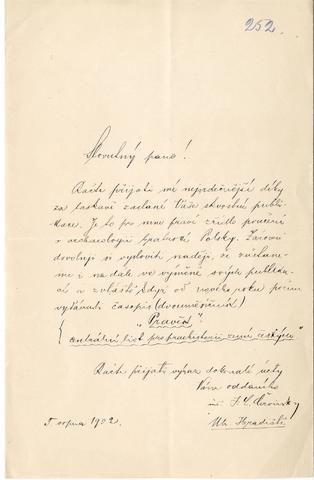 252.
Slovutný pane!
Račte přijati mé nejsrdečnější díky
za laskavé zaslání Vaše skvostné publi-
kace. Je to pro mne pravé zřídlo poučení
v archaeologii Polsky. Zároveň
dovoluji si vysloviti naději, že zůstane-
me i na dále ve výměně svých publika-
cí a zvláště když od nového roku počnu
vydávati časopis (dvouměsíčník)
„Pravěk"
centrální list pro praehistorii zemí českých"
Račte přijati výraz dokonalé úcty
Vám oddaného
inž. J. L. Červinky
Uh. Hradiště
5. srpna 1902